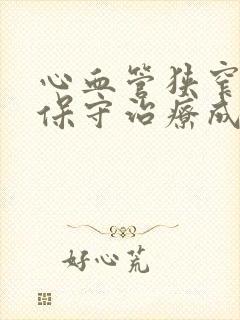 心血管狭窄
保守治疗成
好心荒